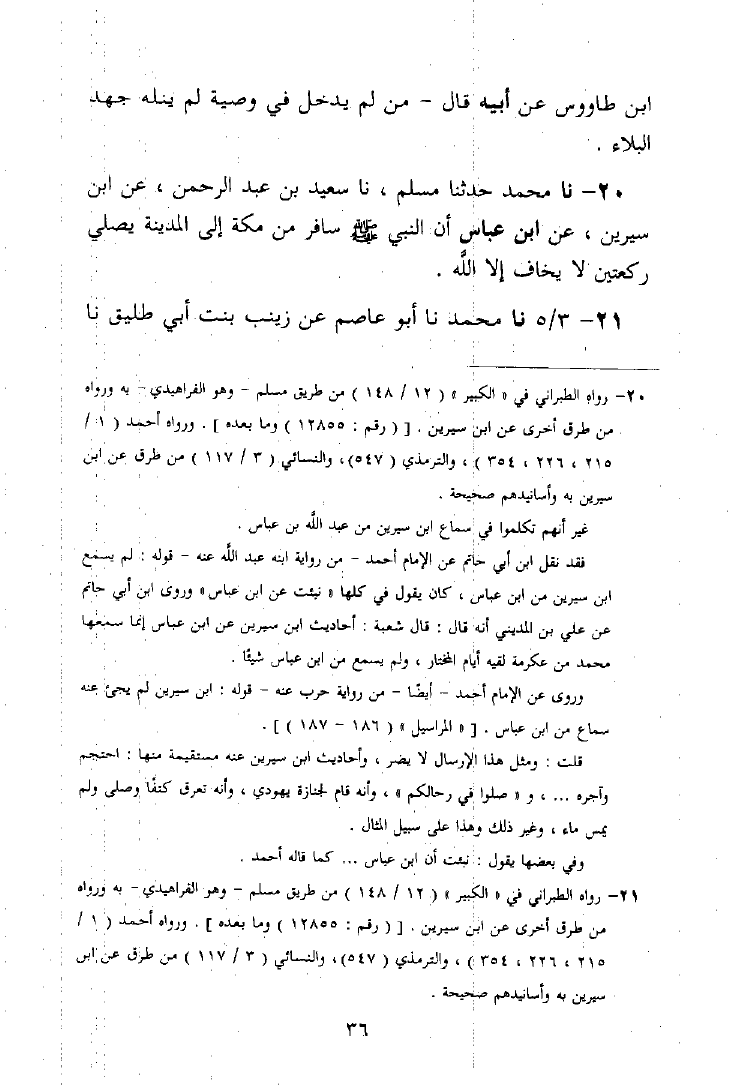 ابن طاووس عن أبيه قال – من لم يدخل في وصية لم ينله جهد
البلاء .
٢٠– نا محمد حدثنا مسلم ، نا سعيد بن عبد الرحمن ، عن ابن
سيرين ، عن ابن عباس أن النبي ﷺ سافر من مكة إلى المدينة يصلي
ركعتين لا يخاف إلا اللَّه .
٢١– ٥/٣ نا محمد نا أبو عاصم عن زينب بنت أبي طليق نا
٢٠– رواه الطبراني في « الكبير » ( ١٢ / ١٤٨ ) من طريق مسلم – وهو الفراهيدي – به ورواه
من طرق أخرى عن ابن سيرين . [ ( رقم : ١٢٨٥٥ ) وما بعده ] . ورواه أحمد ( ١ /
٢١٥ ، ٢٢٦ ، ٣٥٤ ) ، والترمذي ( ٥٤٧) ، والنسائي ( ٣ / ١١٧ ) من طرق عن ابن
سيرين به وأسانيدهم صحيحة .
غير أنهم تكلموا في سماع ابن سيرين من عبد اللَّه بن عباس .
فقد نقل ابن أبي حاتم عن الإمام أحمد – من رواية ابنه عبد اللَّه عنه – قوله : لم يسمع
ابن سيرين من ابن عباس ، كان يقول في كلها « نبئت عن ابن عباس » وروى ابن أبي حاتم
عن علي بن المديني أنه قال : قال شعبة : أحاديث ابن سيرين عن ابن عباس إنما سمعها
محمد من عكرمة لقيه أيام المختار ، ولم يسمع من ابن عباس شيئًا .
وروى عن الإمام أحمد – أيضًا – من رواية حرب عنه – قوله : ابن سيرين لم يجئ عنه
سماع من ابن عباس . [ « المراسيل » ( ١٨٦ – ١٨٧ ) ] .
قلت : ومثل هذا الإرسال لا يضر ، وأحاديث ابن سيرين عنه مستقيمة منها : احتجم
وآجره ... ، و « صلوا في رحالكم » ، وأنه قام لجنازة يهودي ، وأنه تعرق كتفًا وصلى ولم
يمس ماء ، وغير ذلك وهذا على سبيل المثال .
وفي بعضها يقول : نبئت أن ابن عباس ... كما قاله أحمد .
٢١– رواه الطبراني في « الكبير » ( ١٢ / ١٤٨ ) من طريق مسلم – وهو الفراهيدي – به ورواه
من طرق أخرى عن ابن سيرين . [ ( رقم : ١٢٨٥٥ ) وما بعده ] . ورواه أحمد ( ١ /
٢١٥ ، ٢٢٦ ، ٣٥٤ ) ، والترمذي ( ٥٤٧) ، والنسائي ( ٣ / ١١٧ ) من طرق عن ابن
سيرين به وأسانيدهم صحيحة .
٣٦